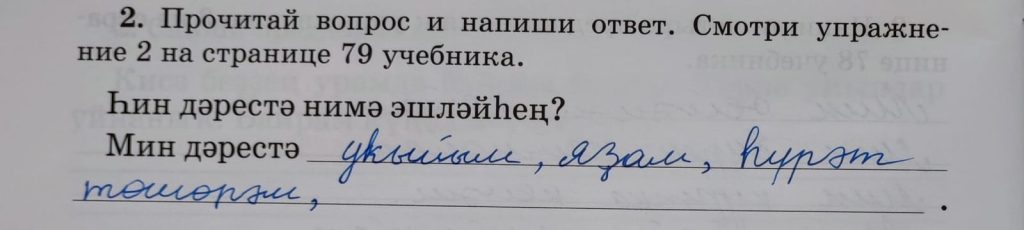 2. Прочитай вопрос и напиши ответ. Смотри упражне-
ние 2 на странице 79 учебника.
Һин дәрестә нимә эшләйһең?
Мин дәрестә укыйым, яҙам, һүрәт
төшөрәм, .